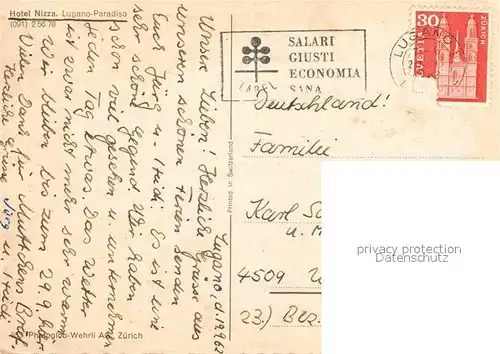 Hotel Nizza. Lugano-Paradiso
(091) 2 56 78
SALARI
GIUSTI
ECONOMIA
SANA
LABEL
30
HELVETIA
ZÜRICH
LUGANO
Lugano, d.
Unsere Lieben! Herzliche Grüsse aus
unseren schönen Ferien senden
Euch Jürg u. Heidi. Es ist eine
sehr schöne Gegend. Wir haben
schon viel gesehen u. unternehmen
jeden Tag etwas. Das Wetter
ist zwar nicht mehr sehr warm.
Wir bleiben bis zum 29.9. hier
Vielen Dank für Muttchens Brief.
Herzliche Grüsse Jürg u. Heidi
Printed in Switzerland
Photoglob-Wehrli AG, Zürich
Deutschland!
Familie
Karl
u.
4509
23.) Bez.
privacy protection
www.oldthing.com